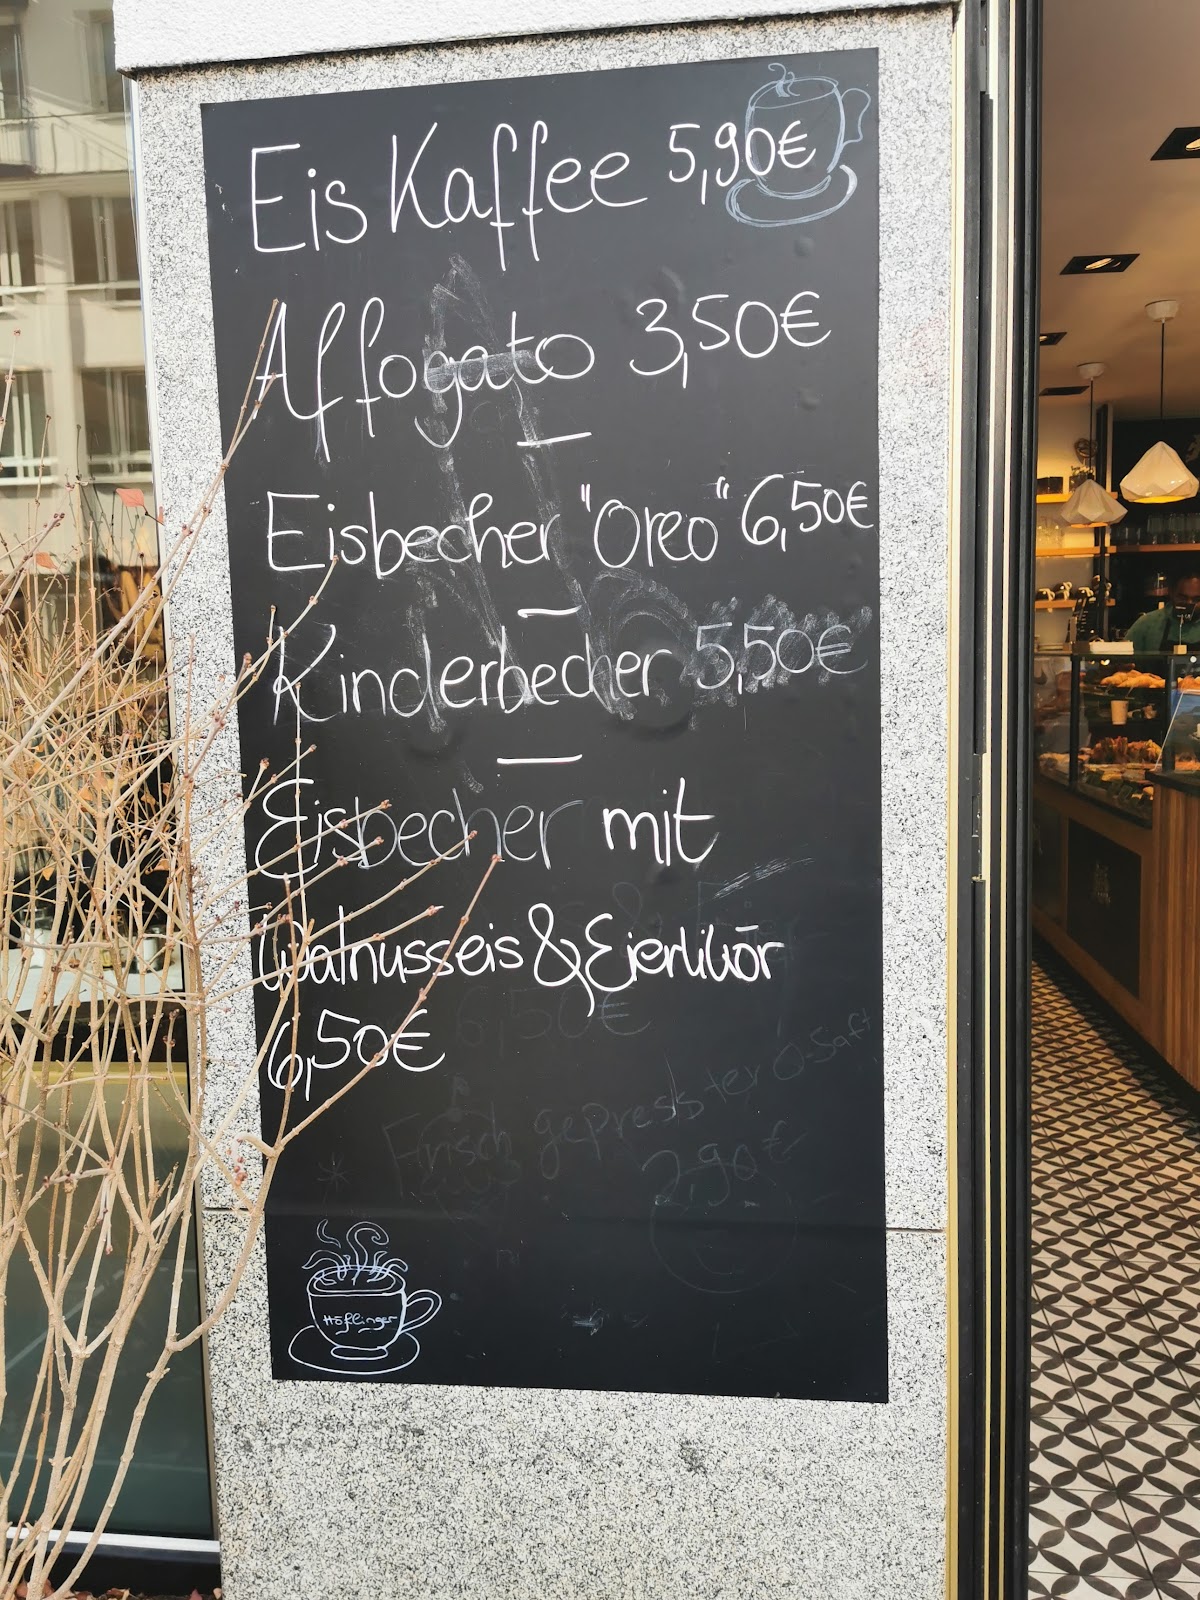 Eis Kaffee 5,90€
Affogato 3,50€
Eisbecher "Oreo" 6,50€
Kinderbecher 5,50€
Eisbecher mit
Walnusseis & Eierlikör
6,50€
6,50€
Frisch gepresster O-Saft
2,90€
Höflinger